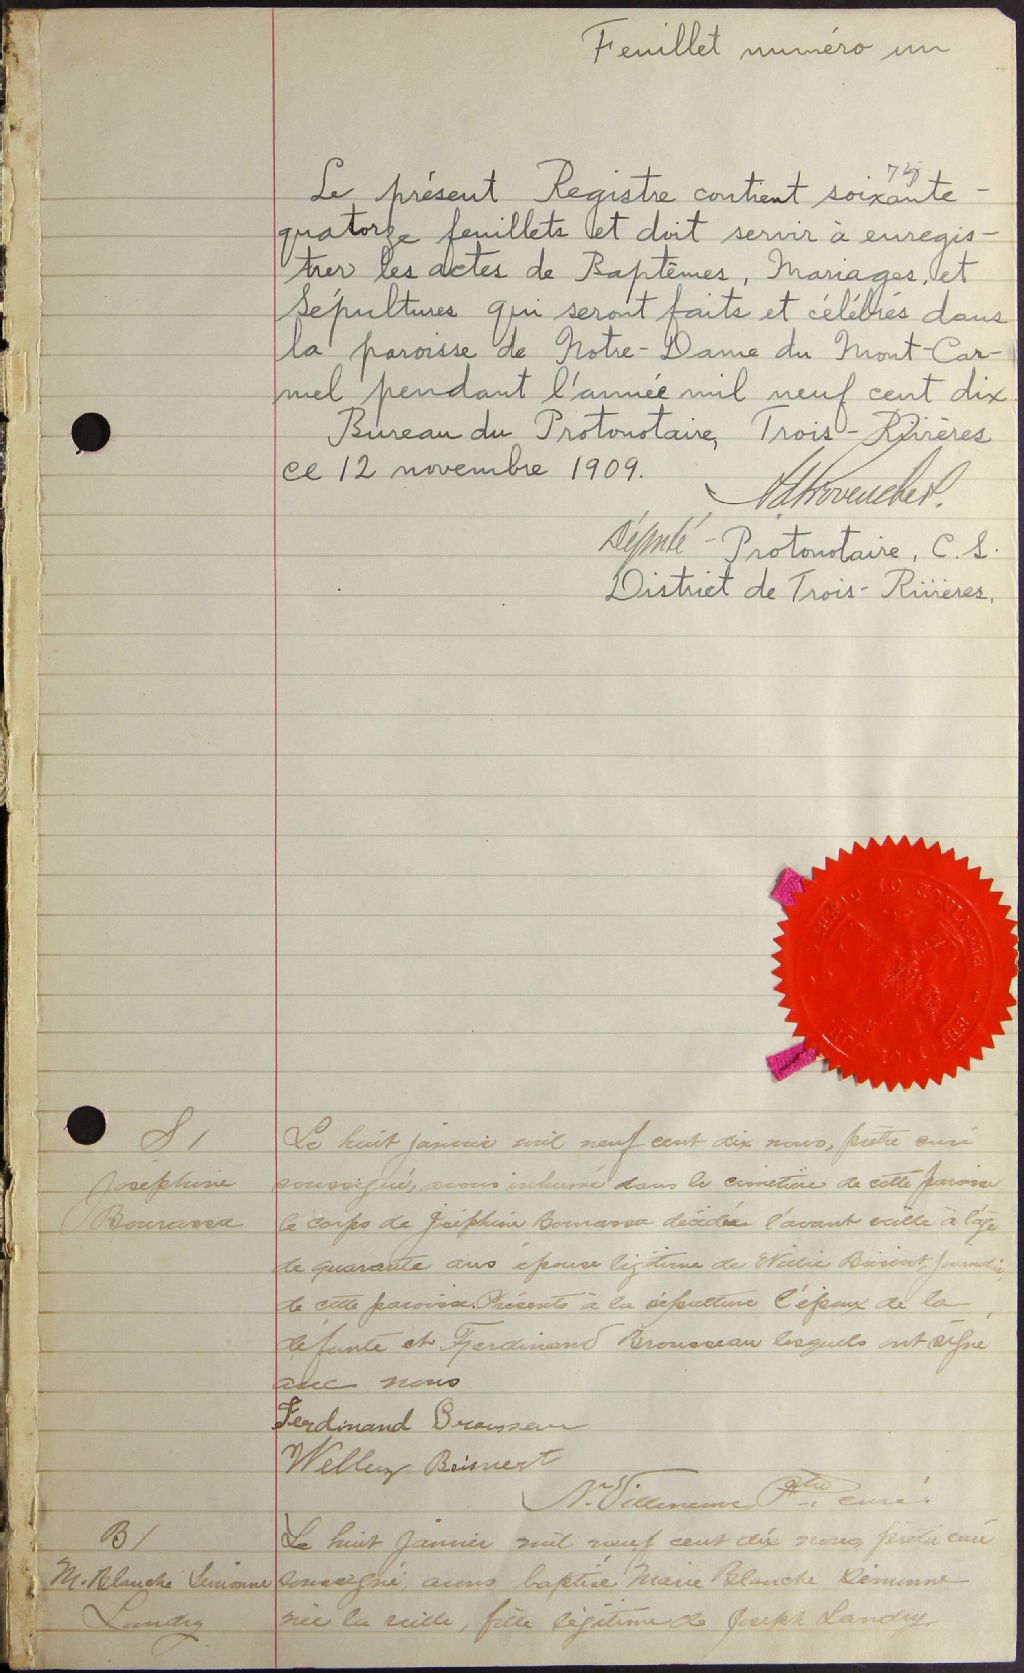 Feuillet numéro un
74
Le présent Registre contient soixante-
quatorze feuillets et doit servir à enregis-
trer les actes de Baptêmes, Mariages, et
Sépultures qui seront faits et célébrés dans
la paroisse de Notre-Dame du Mont-Car-
mel pendant l'année mil neuf cent dix.
Bureau du Protonotaire, Trois-Rivières
ce 12 novembre 1909.
Député-Protonotaire, C. S.
District de Trois-Rivières.
S 1
Joséphine
Bourassa
Le huit janvier mil neuf cent dix nous, prêtre curé
soussigné, avons inhumé dans le cimetière de cette paroisse
le corps de Joséphine Bourassa décédée l'avant veille à l'âge
de quarante ans épouse légitime de Willie Boisvert, journalier,
de cette paroisse. Présents à la sépulture l'époux de la
défunte et Ferdinand Brousseau lesquels ont signé
avec nous
Ferdinand Brousseau
Welley Boisvert
N. Villeneuve Ptre curé.
B 1
M. Blanche Simonne
Landry
Le huit janvier mil neuf cent dix nous prêtre curé
soussigné, avons baptisé Marie Blanche Simonne
née la veille, fille légitime de Joseph Landry